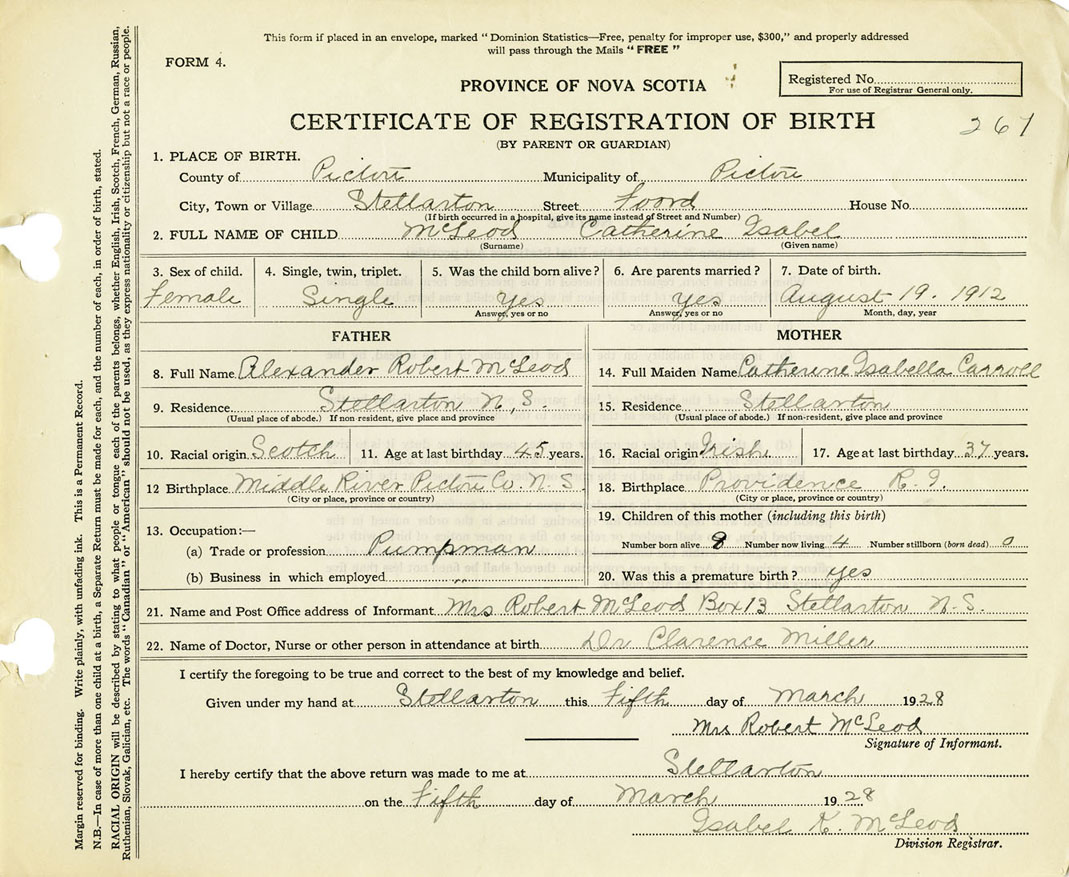 This form if placed in an envelope, marked "Dominion Statistics—Free, penalty for improper use, $300," and properly addressed
will pass through the Mails "FREE"
FORM 4.
PROVINCE OF NOVA SCOTIA
Registered No.
For use of Registrar General only.
CERTIFICATE OF REGISTRATION OF BIRTH
267
(BY PARENT OR GUARDIAN)
1. PLACE OF BIRTH.
County of Pictou Municipality of Pictou
City, Town or Village Stellarton Street Foord House No.
(If birth occurred in a hospital, give its name instead of Street and Number)
2. FULL NAME OF CHILD McLeod Catherine Isabel
(Surname) (Given name)
3. Sex of child. 4. Single, twin, triplet. 5. Was the child born alive? 6. Are parents married? 7. Date of birth.
Female Single Yes Yes August 19. 1912
Answer, yes or no Answer, yes or no Month, day, year
FATHER MOTHER
8. Full Name Alexander Robert McLeod 14. Full Maiden Name Catherine Isabella Carroll
9. Residence Stellarton N,S. 15. Residence Stellarton
(Usual place of abode.) If non resident, give place and province (Usual place of abode.) If non-resident, give place and province
10. Racial origin Scotch 11. Age at last birthday 45 years. 16. Racial origin Irish 17. Age at last birthday 37 years.
12 Birthplace Middle River Pictou Co. N.S. 18. Birthplace Providence R.I.
(City or place, province or country) (City or place, province or country)
13. Occupation:— 19. Children of this mother (including this birth)
(a) Trade or profession Pumpman Number born alive Number now living 4 Number stillborn (born dead) 0
(b) Business in which employed 20. Was this a premature birth? yes
21. Name and Post Office address of Informant Mrs Robert McLeod Box 13 Stellarton N.S.
22. Name of Doctor, Nurse or other person in attendance at birth Dr Clarence Miller
I certify the foregoing to be true and correct to the best of my knowledge and belief.
Given under my hand at Stellarton this Fifth day of March 1928
Mrs Robert McLeod
Signature of Informant.
I hereby certify that the above return was made to me at Stellarton
on the Fifth day of March 1928
Isabel K. McLeod
Division Registrar.
Margin reserved for binding. Write plainly, with unfading ink. This is a Permanent Record.
N.B.—In case of more than one child at a birth, a Separate Return must be made for each, and the number of each, in order of birth, stated.
RACIAL ORIGIN will be described by stating to what people or tongue each of the parents belongs, whether English, Irish, Scotch, French, German, Russian,
Ruthenian, Slovak, Galician, etc. The words "Canadian" or "American" should not be used, as they express nationality or citizenship but not a race or people.